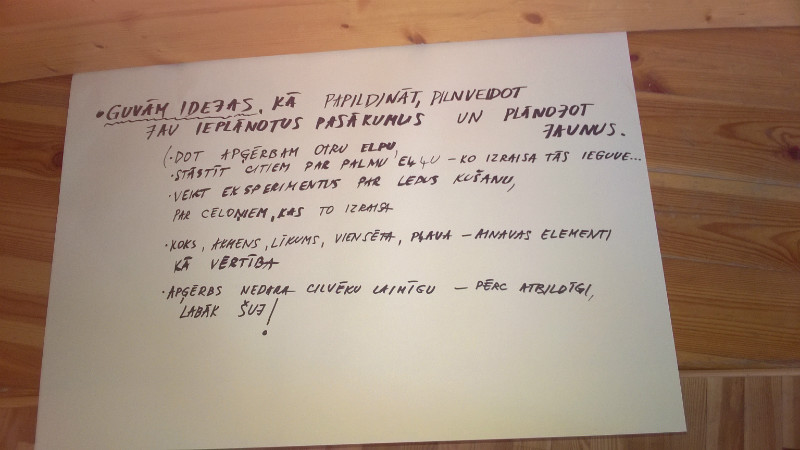 • GUVĀM IDEJAS, KĀ PAPILDINĀT, PILNVEIDOT
JAU IEPLĀNOTUS PASĀKUMUS UN PLĀNOJOT
JAUNUS.
(• DOT APĢĒRBAM OTRU ELPU,
• STĀSTĪT CITIEM PAR PALMU EĻĻU – KO IZRAISA TĀS IEGUVE...
• VEIKT EKSPERIMENTUS PAR LEDUS KUŠANU,
PAR CĒLOŅIEM, KAS TO IZRAISA
• KOKS, AKMENS, LĪKUMS, VIENSĒTA, PĻAVA – AINAVAS ELEMENTI
KĀ VĒRTĪBA
• APĢĒRBS NEDARA CILVĒKU LAIMĪGU – PĒRC ATBILDĪGI,
LABĀK ŠUJ!